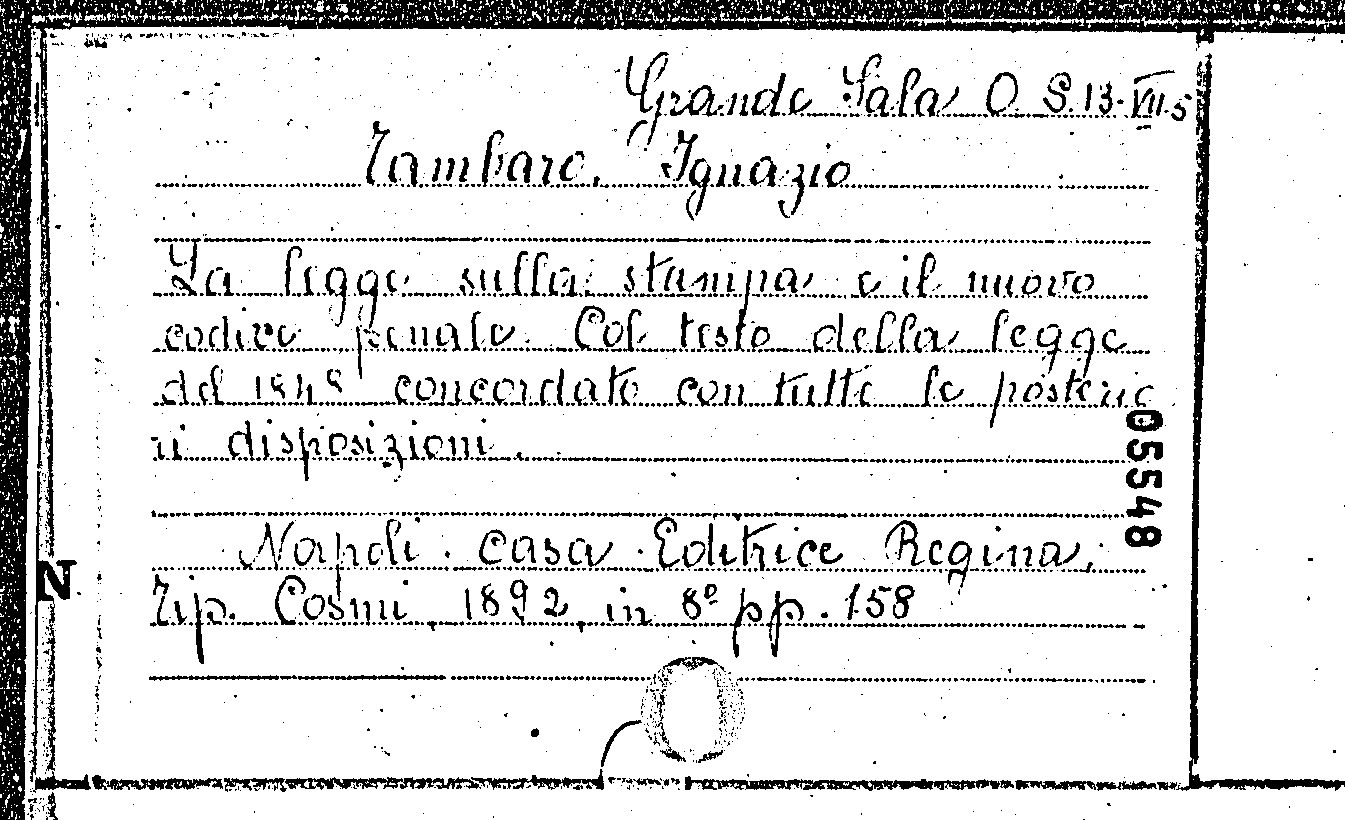 Grande Sala O S.13.VII.5
Tambaro, Ignazio
La legge sulla stampa e il nuovo
codice penale. Col testo della legge
del 1848 concordato con tutte le posterio
ri disposizioni.
05548
Napoli. Casa Editrice Regina,
N
Tip. Cosmi, 1892, in 8º pp. 158